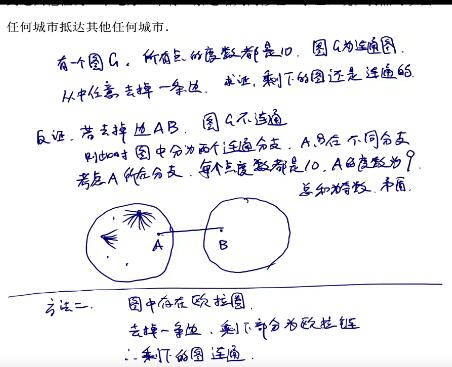 任何城市抵达其他任何城市.
有一个图G. 所有点的度数都是10. 图G为连通图.
从中任意去掉一条边. 求证, 剩下的图还是连通的
反证. 若去掉边AB. 图G不连通
则此时图中分为两个连通分支. A.B在不同分支
考虑A所在分支. 每个点度数都是10, A的度数为9.
总和为奇数. 矛盾.
A B
方法二. 图中存在欧拉圈.
去掉一条边. 剩下部分为欧拉链
∴剩下的图连通.